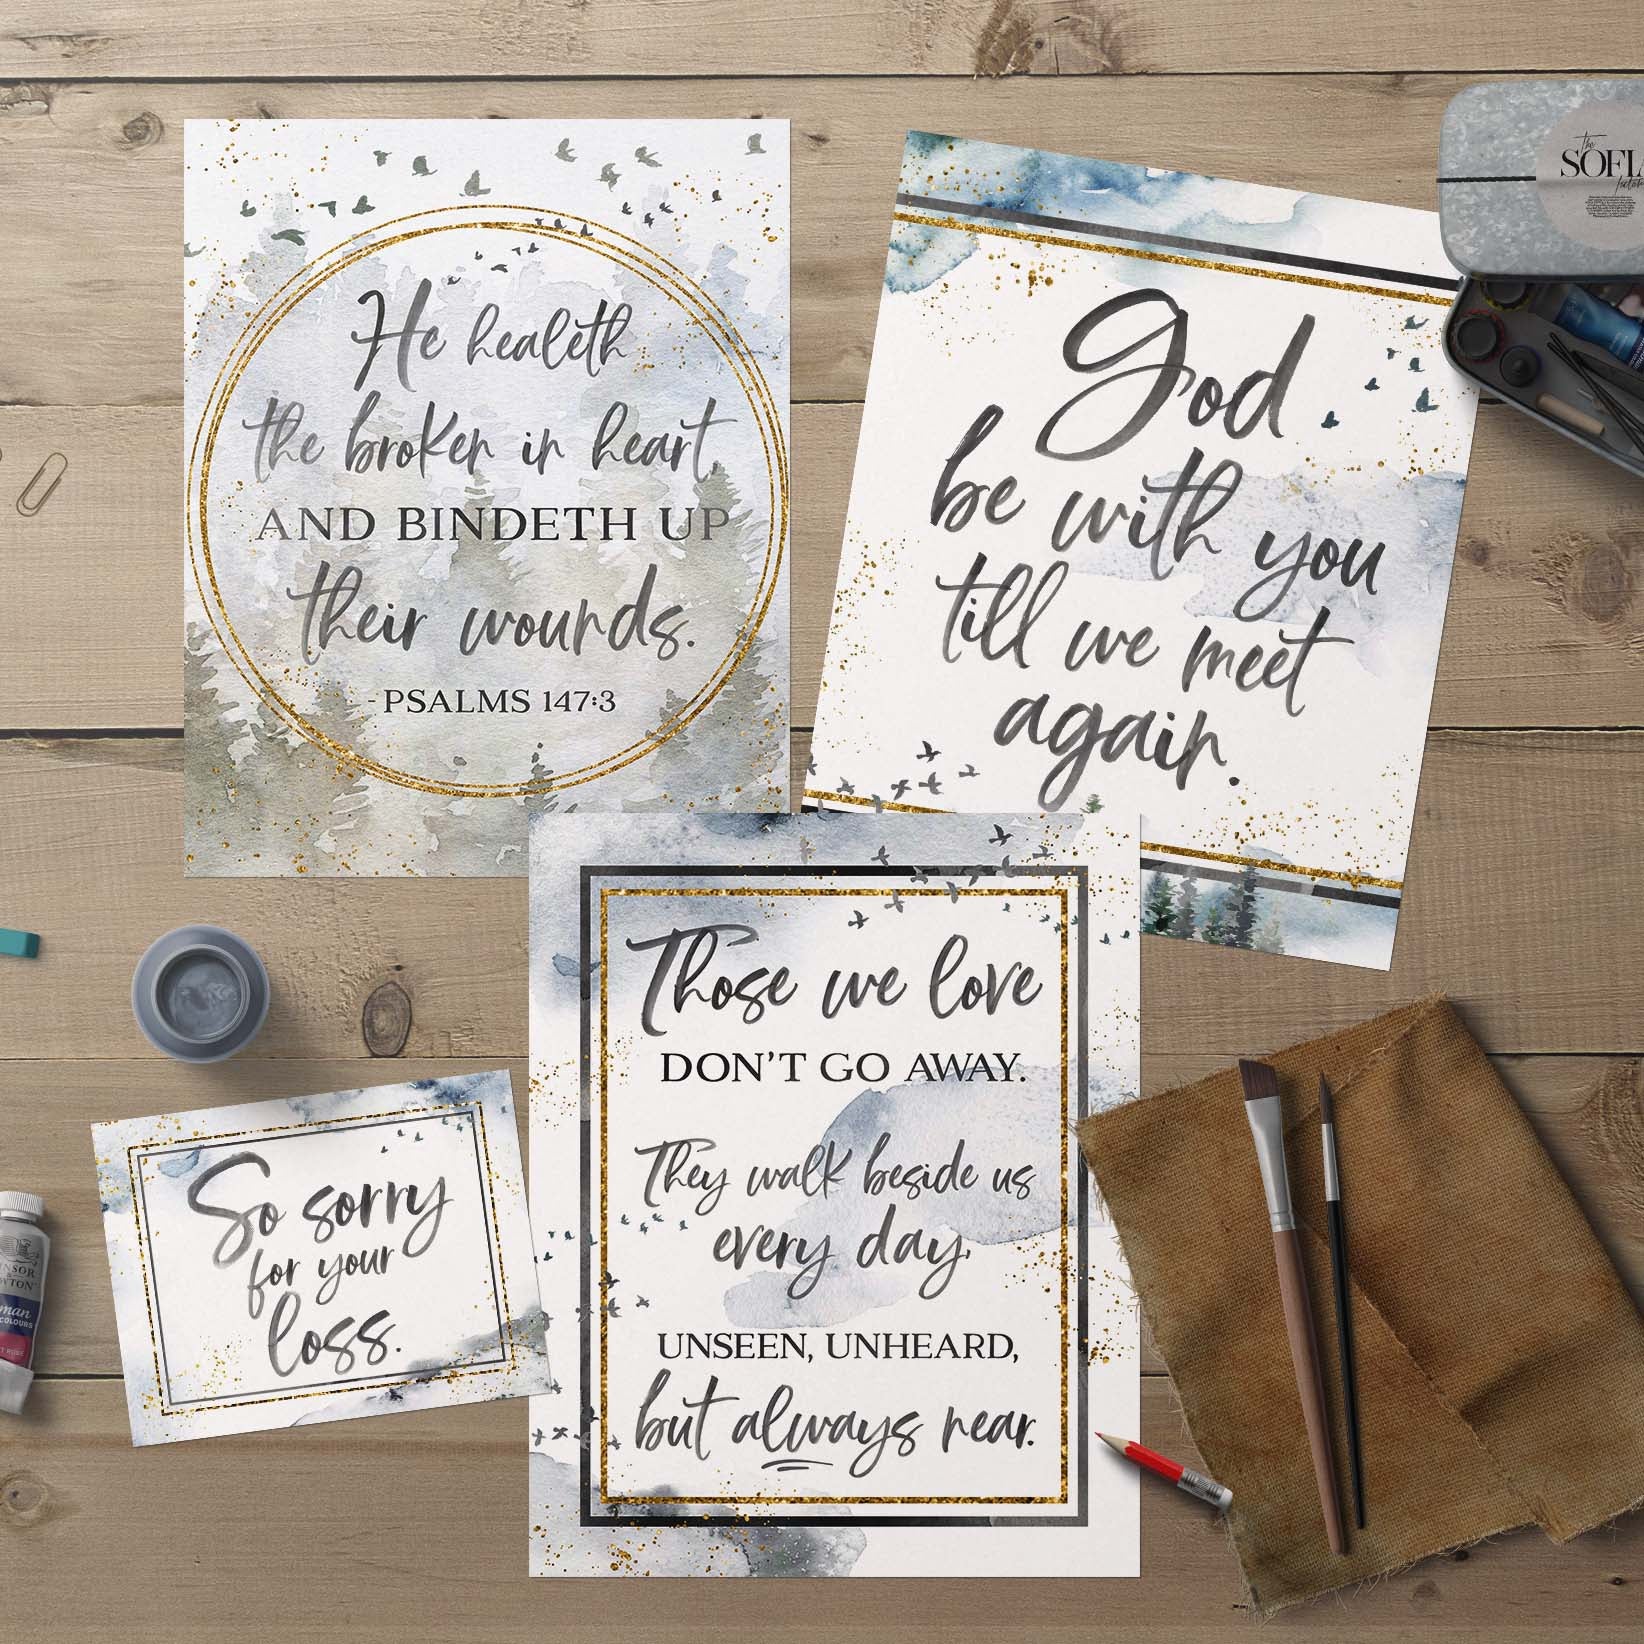 He healeth
the broken in heart,
AND BINDETH UP
their wounds.
-PSALMS 147:3
God
be with you
till we meet
again.
the
SOFIA
Those we love
DON'T GO AWAY.
They walk beside us
every day,
UNSEEN, UNHEARD,
but always near.
So sorry
for your
loss.